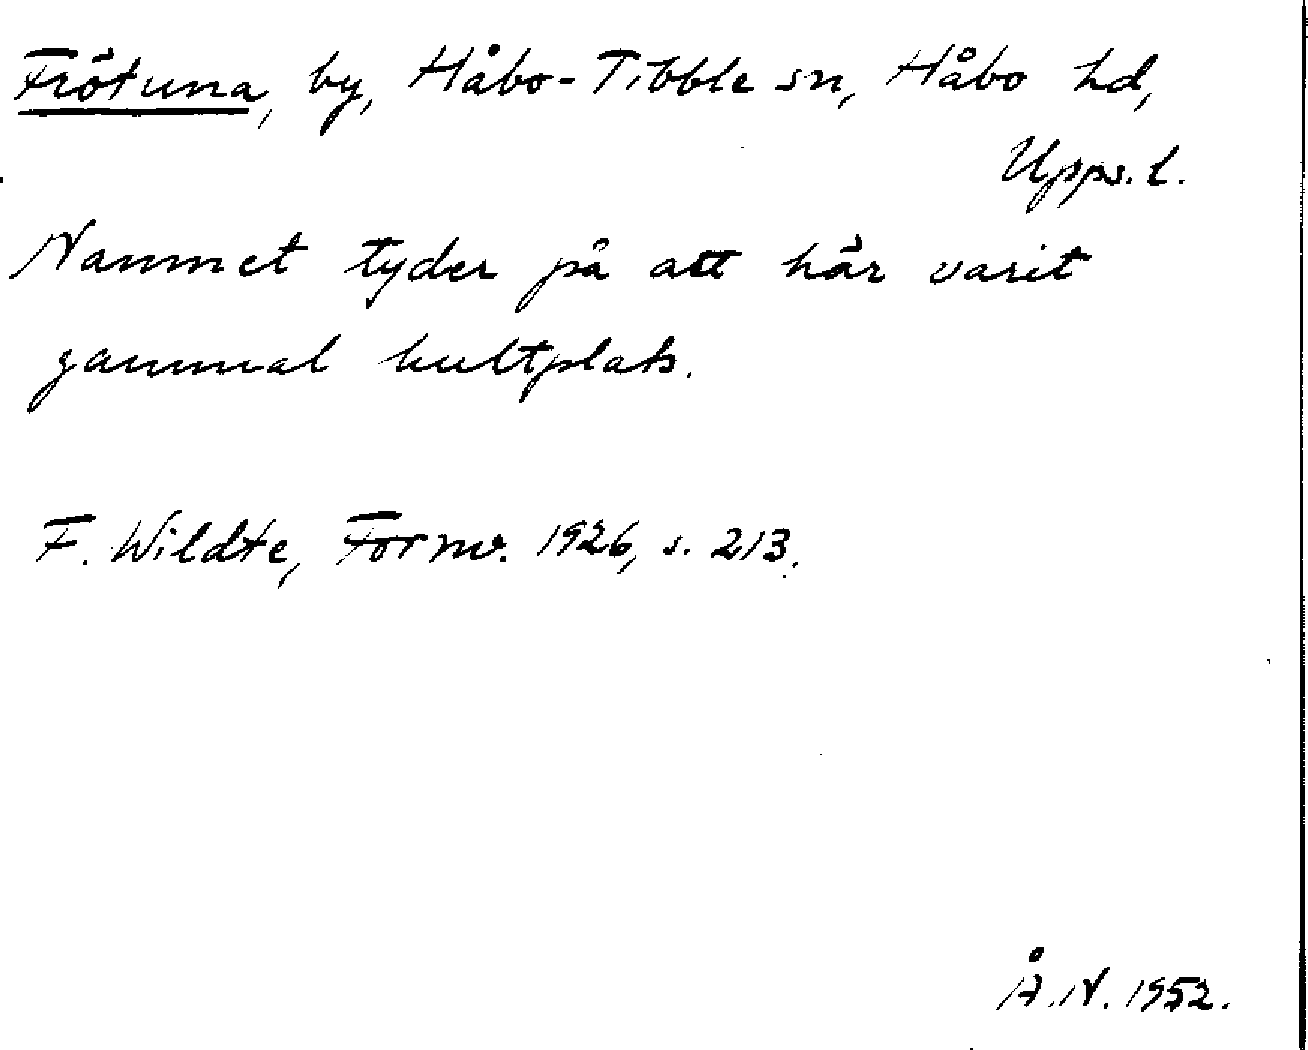 Frötuna, by, Håbo-Tibble sn, Håbo hd,
Upps. l.
Namnet tyder på att här varit
gammal kultplats.
F. Wildte, Fornv. 1926, s. 213.
Å. N. 1952.